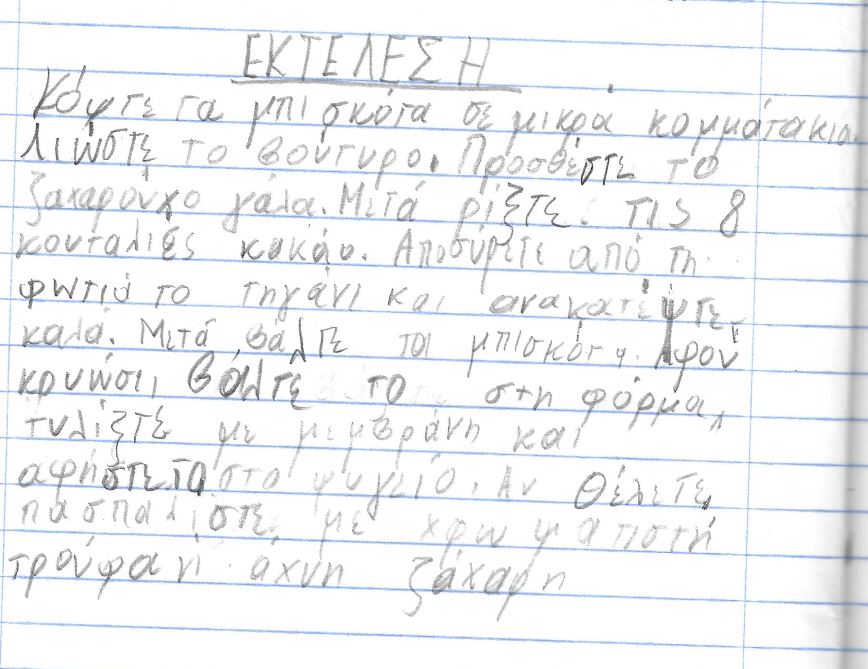 ΕΚΤΕΛΕΣΗ
Κόψτε τα μπισκότα σε μικρά κομμάτακια
Λιώστε το βούτυρο. Προσθέστε το
ζαχαρούχο γάλα. Μετά ρίξτε. τις 8
κουταλιές κακάο. Αποσύρετε από τη
φωτιά το τηγάνι και ανακατέψτε
καλά. Μετά βάλτε τα μπισκότα. Αφού
κρυώσι, βάλτε το στη φόρμα,
τυλίξτε με μεμβράνη και
αφήστετο στο ψυγείο. Αν θέλετε,
πασπαλίστε με χρωματιστή
τρούφα ή άχνη ζάχαρη